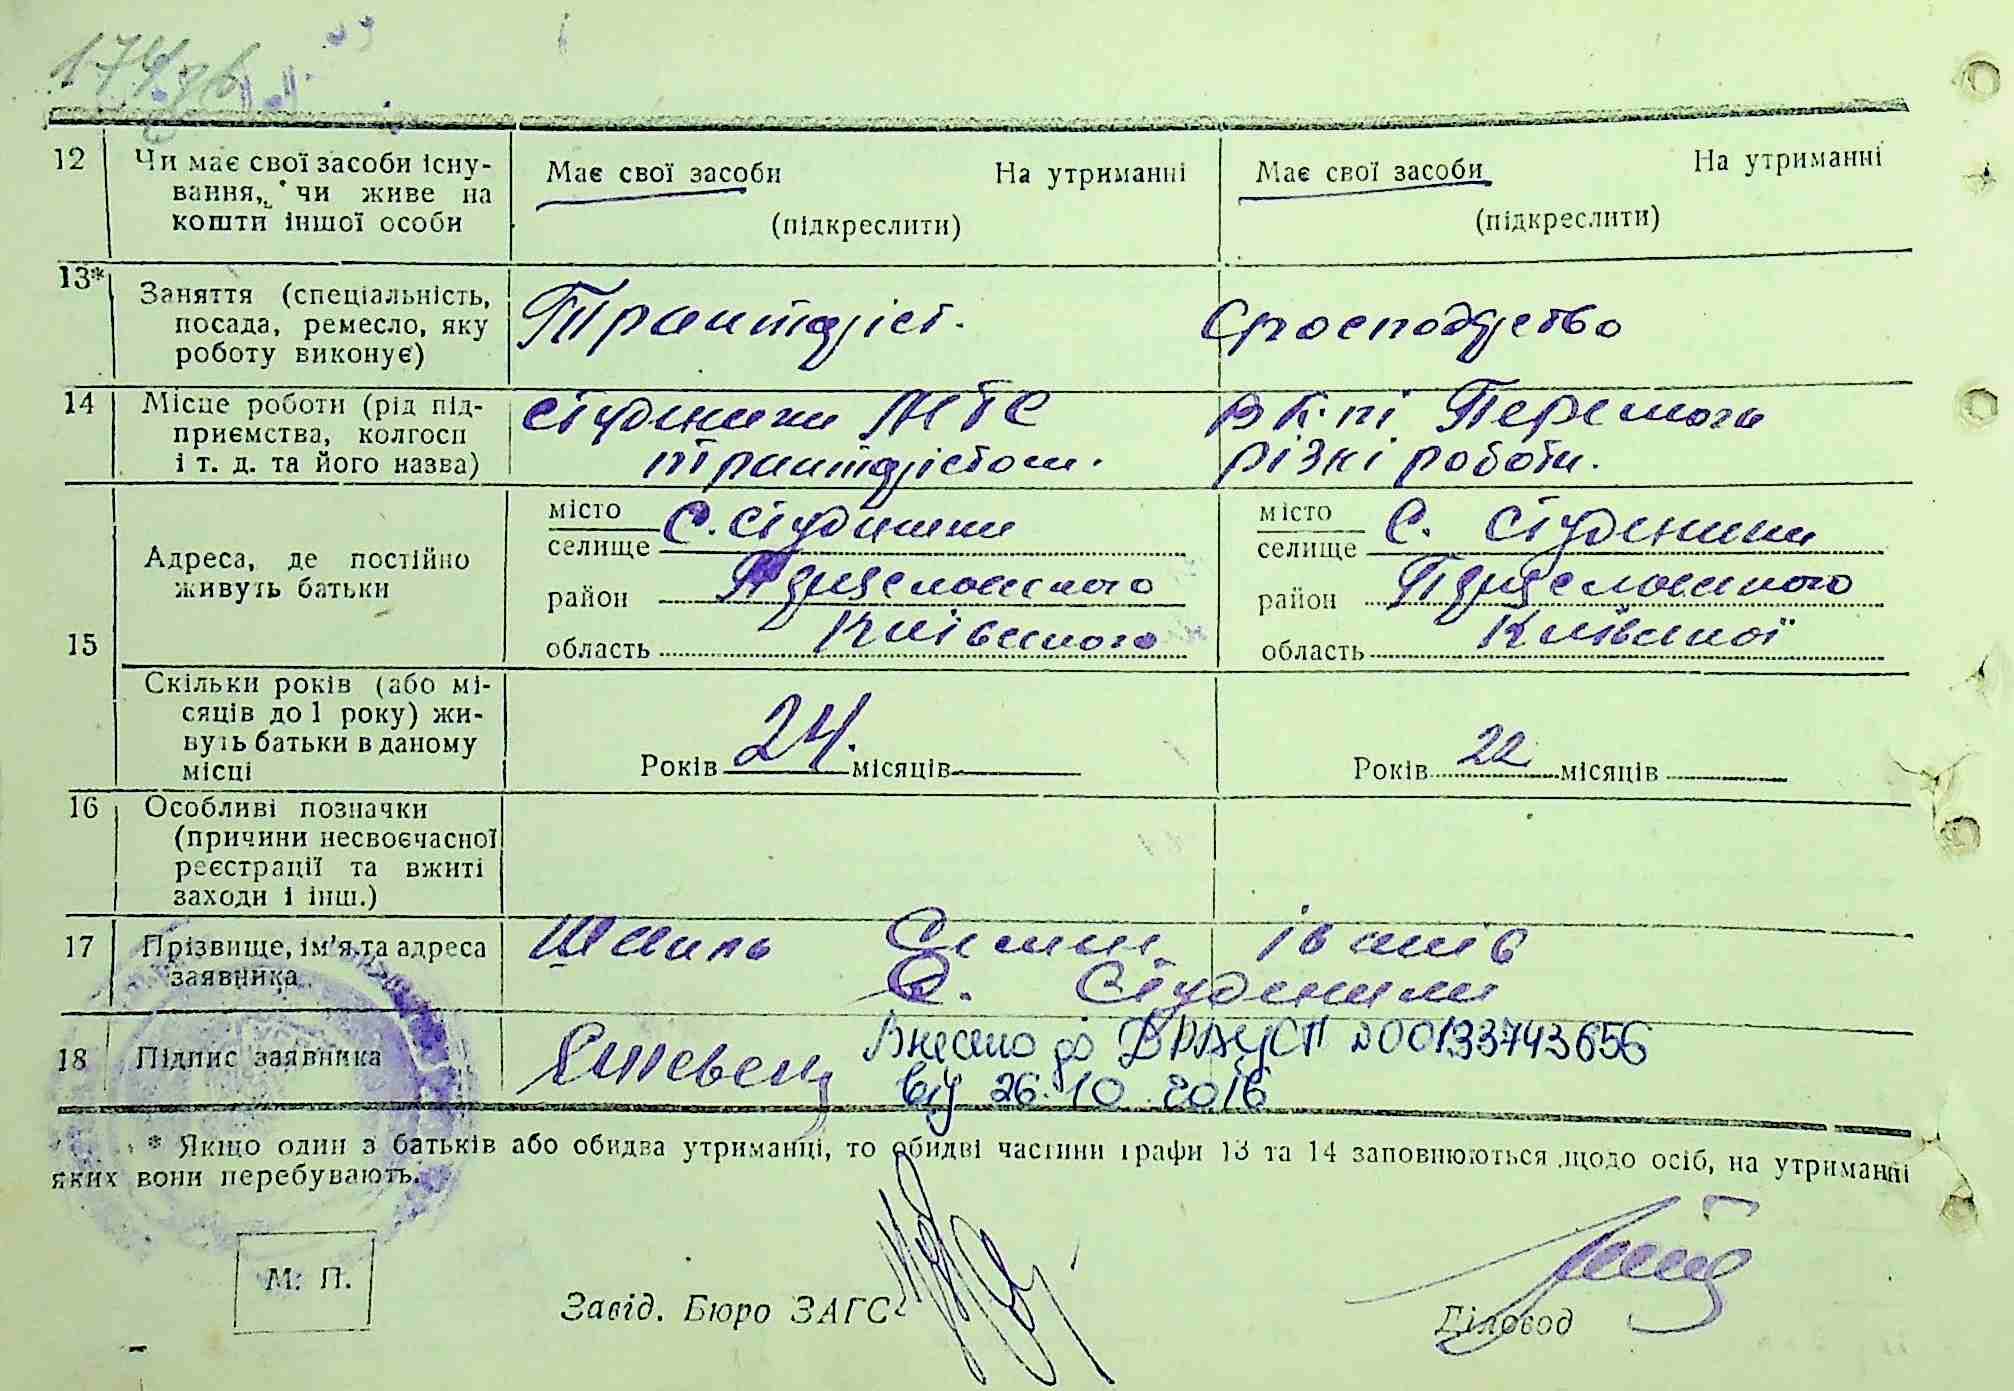 174
12 Чи має свої засоби існу-
вання, чи живе на
кошти іншої особи
Має свої засоби На утриманні
(підкреслити)
Має свої засоби На утриманні
(підкреслити)
13* Заняття (спеціальність,
посада, ремесло, яку
роботу виконує)
Трактаріст.
14 Місце роботи (рід під-
приємства, колгосп
і т. д. та його назва)
Студеники МТС
трактарістом.
в к-пі Перемога
різні роботи.
15 Адреса, де постійно
живуть батьки
місто
селище С. Студеники
район
область Київського
місто
селище С. Студеники
район
область Київської
Скільки років (або мі-
сяців до 1 року) жи-
вуть батьки в даному
місці
Років 24. місяців
Років 22 місяців
16 Особливі позначки
(причини несвоєчасної
реєстрації та вжиті
заходи і інш.)
17 Прізвище, ім'я та адреса
заявника
с. Студеники
18 Підпис заявника
Внесено до ДРАЦСГ 00133743656
від 26.10.2016
* Якщо один з батьків або обидва утриманці, то обидві частини графи 13 та 14 заповнюються щодо осіб, на утриманні
яких вони перебувають.
М. П.
Завід. Бюро ЗАГС
Діловод